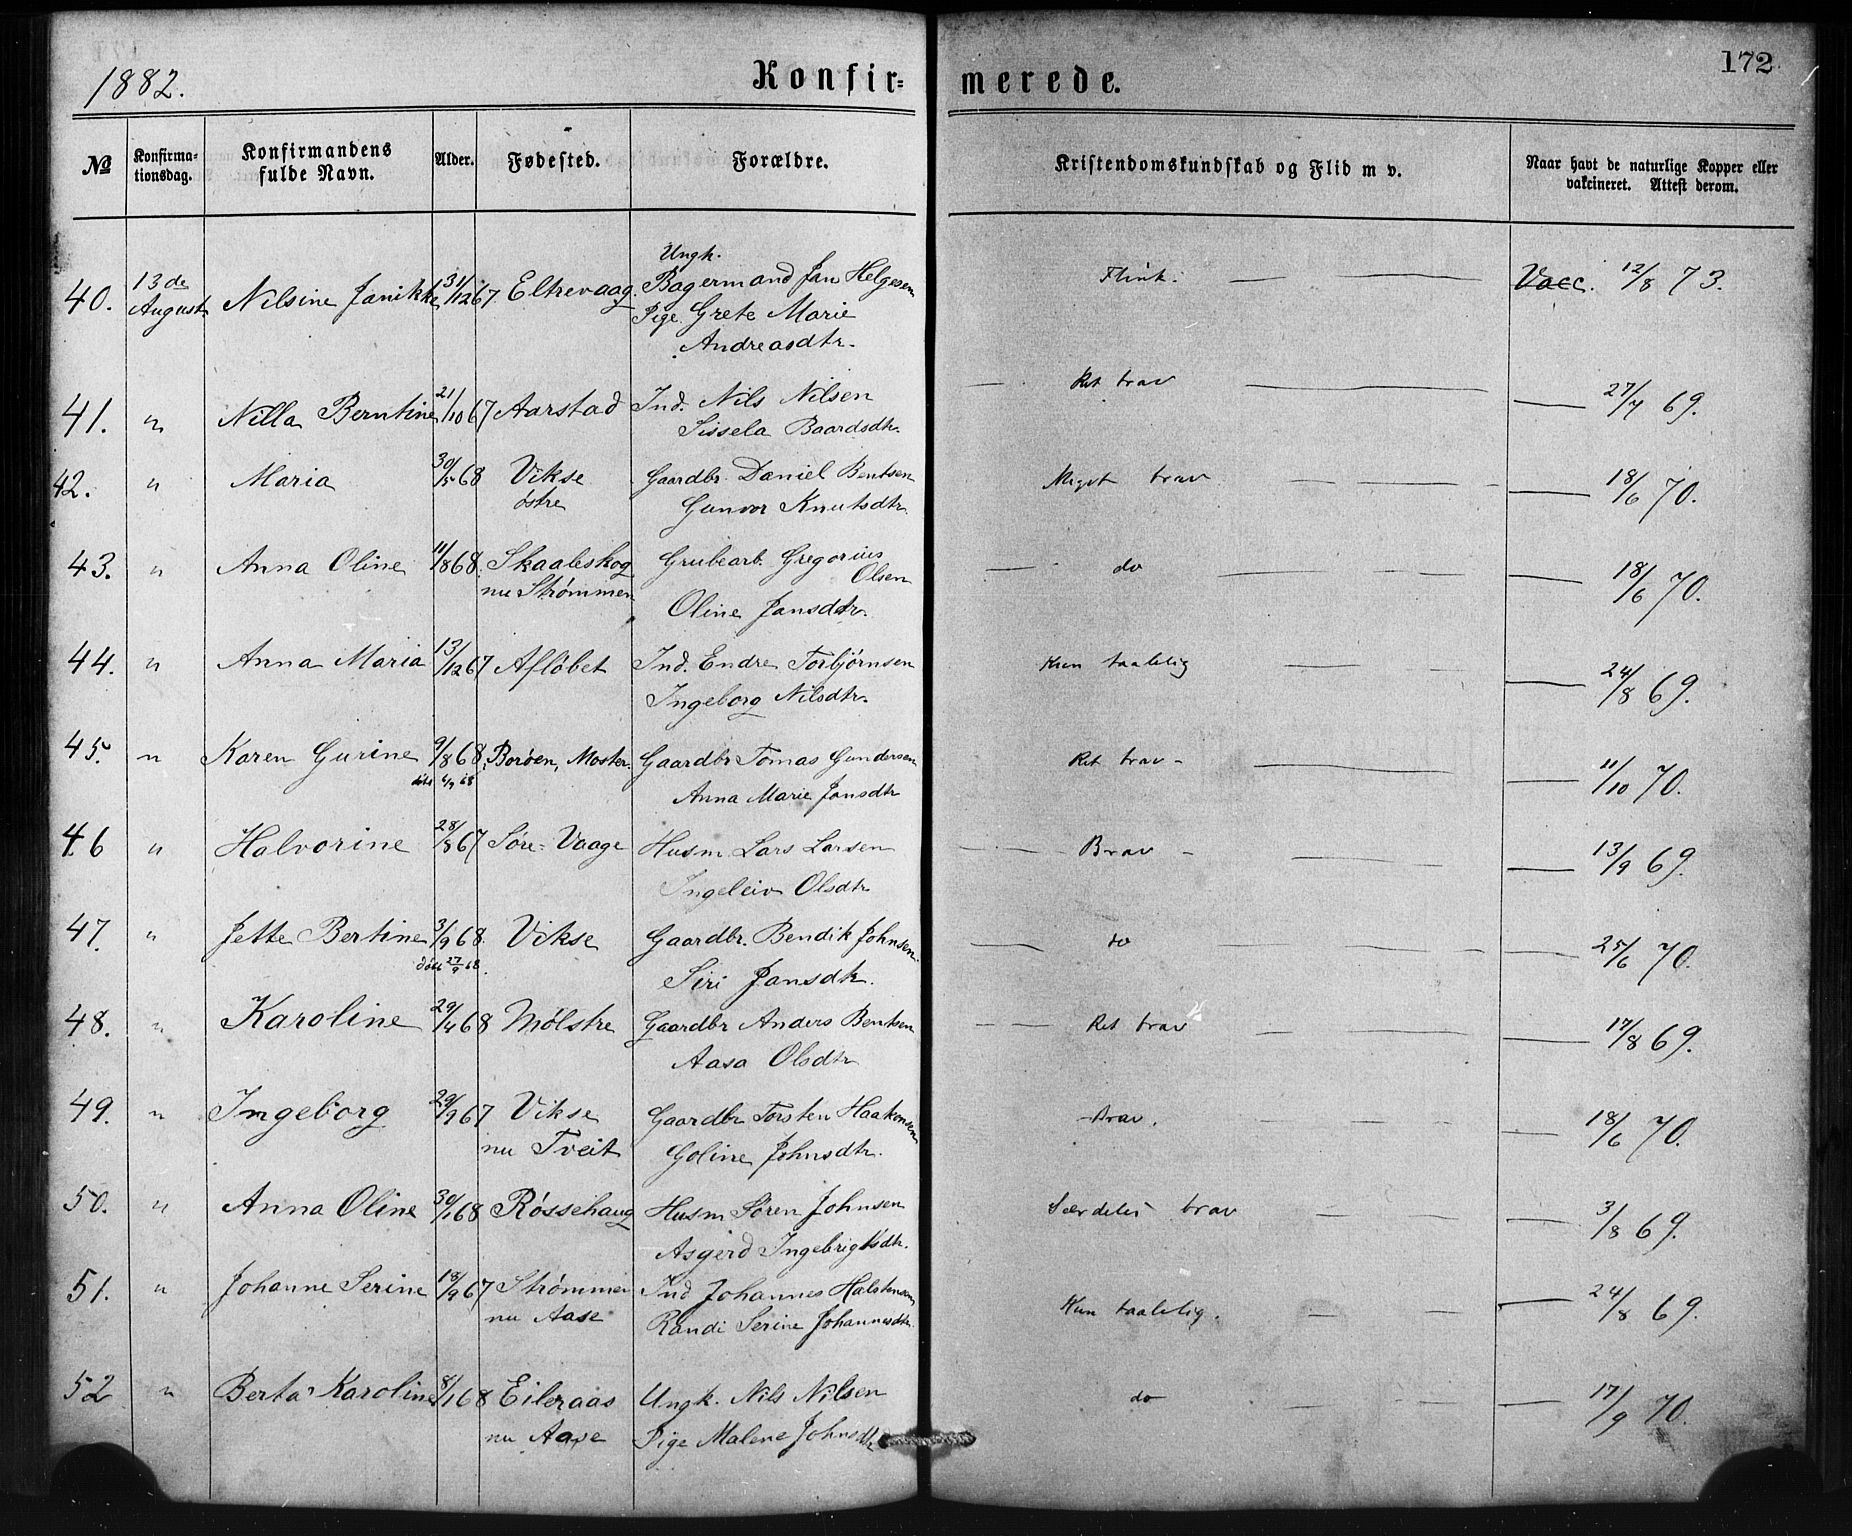 1882.
Konfir=
merede.
172
No
Konfirma-
tionsdag.
Konfirmandens
fulde Navn.
Alder.
Fødested.
Forældre.
Kristendomskundskab og Flid m v.
Naar havt de naturlige Kopper eller
vakcineret. Attest derom.
40. 13de August Nilsine Janikke 31/12 67 Eltrevaag Ungk.
Bagermand Jan Helgesen
Pige Grete Marie
Andreasdtr.
Flink. Vacc. 12/8 73.
41. " Nilla Berntine 21/10 67 Aarstad Ind. Nils Nilsen
Sissela Baardsdtr.
Ret brav 27/7 69.
42. " Maria 30/5 68 Vikse østre Gaardbr. Daniel Bentsen
Gunvor Knutsdtr.
Meget brav 18/6 70.
43. " Anna Oline 11/8 68. Skaaleskog nu Strømmen Grubearb. Gregorius
Olsen
Oline Jansdtr.
do 18/6 70.
44. " Anna Maria 13/12 67 Afløbet Ind. Endre Torbjørnsen
Ingeborg Nilsdtr.
Kun taalelig 24/8 69.
45. " Karen Gurine 9/8 68, Borøen, Moster. Gaardbr Tomas Gundersen
Anna Marie Jansdtr
Ret brav 11/10 70.
46 " Halvorine 28/8 67 Søre-Vaage Husm. Lars Larsen
Ingeleiv Olsdtr
Brav 13/9 69.
47. " Jette Bertine 3/9 68. døbt 27/9 68. Vikse Gaardbr. Bendik Johnsen
Siri Jansdtr.
do 25/6 70.
48. " Karoline 29/4 68 Mølstre Gaardbr Anders Bentsen
Aasa Olsdtr
Ret brav 17/8 69.
49. " Ingeborg 29/9 67 Vikse nu Tveit Gaardbr Torsten Haakonsen
Goline Johnsdtr.
Brav. 18/6 70.
50. " Anna Oline 30/1 68 Røssehaug Husm Søren Johnsen
Asgerd Ingebrigtsdtr.
Særdeles brav 3/8 69.
51. " Johanne Serine 18/9 67 Strømmen nu Aase Ind Johannes Halstensen
Randi Serine Johannesdtr.
Kun taalelig. 24/8 69.
52 " Berta Karoline 8/1 68 Eileraas nu Aase Ungk. Nils Nilsen
Pige Malene Johnsdtr
do 17/9 70.